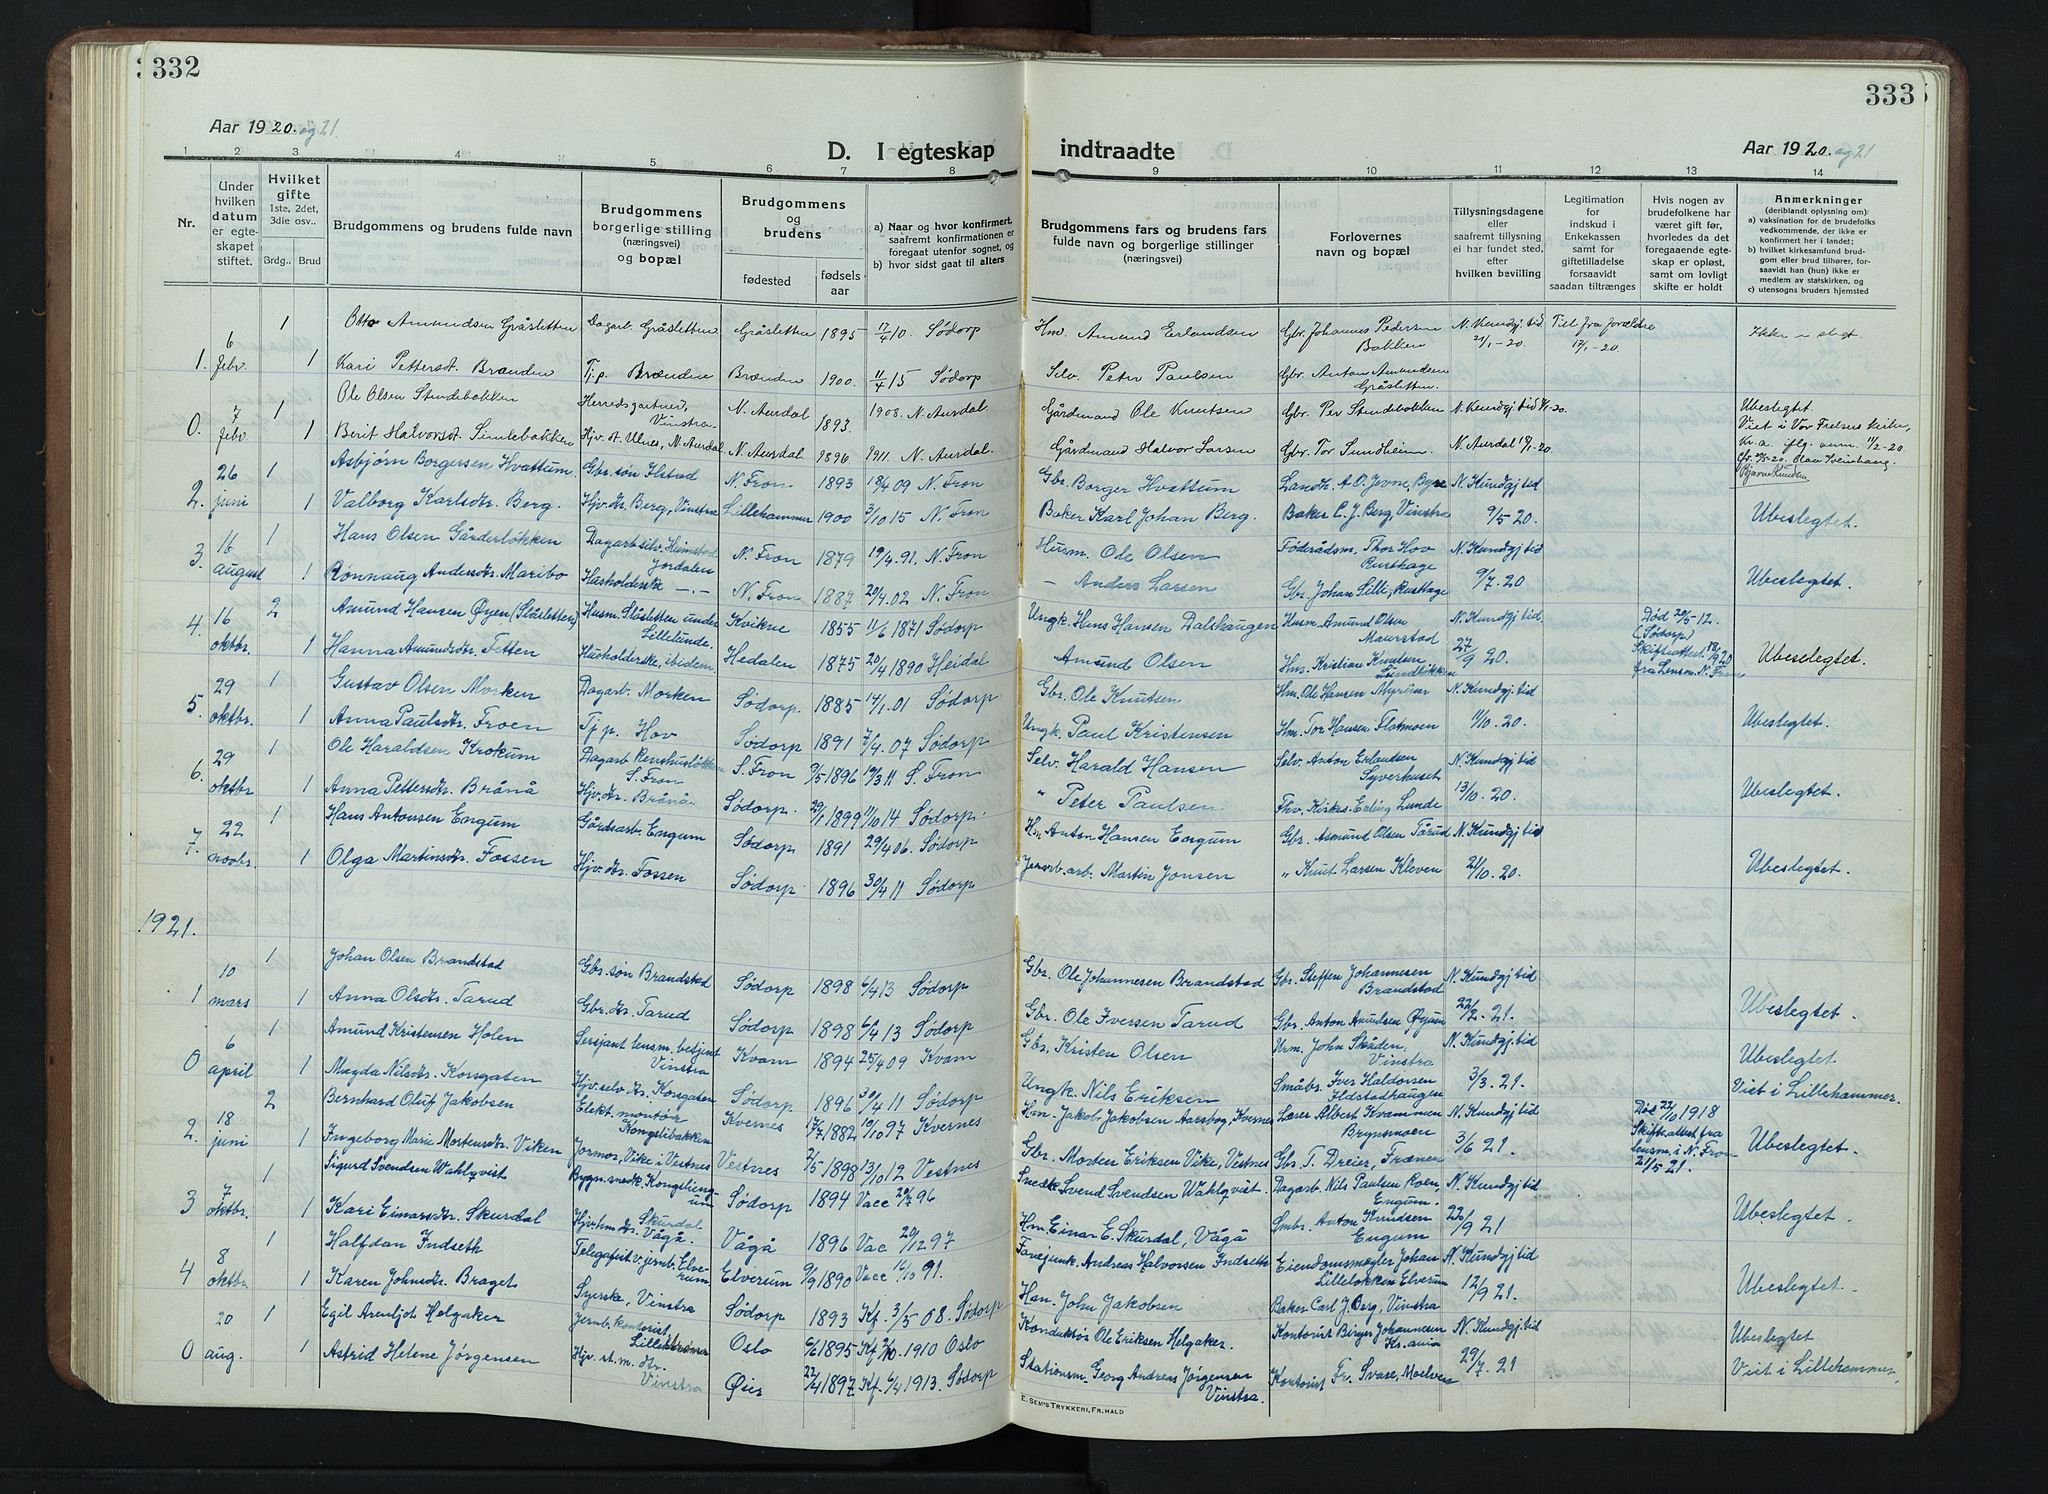 332
333
Aar 1920. og 21.
D. I egteskap indtraadte
Aar 1920. og 21
1 2 3 4 5 6 7 8 9 10 11 12 13 14
Nr.
Under hvilken datum er egteskapet stiftet.
Hvilket gifte 1ste, 2det, 3die osv..
Brdg.. Brud
Brudgommens og brudens fulde navn
Brudgommens borgerlige stilling (næringsvei) og bopæl
Brudgommens og brudens
fødested
fødsels aar
a) Naar og hvor konfirmert, saafremt konfirmationen er foregaat utenfor sognet, og
b) hvor sidst gaat til alters
Brudgommens fars og brudens fars fulde navn og borgerlige stillinger (næringsvei)
Forlovernes navn og bopæl
Tillysningsdagene eller saafremt tillysning ei har fundet sted, efter hvilken bevilling
Legitimation for indskud i Enkekassen samt for giftetilladelse forsaavidt saadan tiltrænges
Hvis nogen av brudefolkene har været gift før, hvorledes da det foregaaende egteskap er opløst, samt om lovligt skifte er holdt
Anmerkninger (deriblandt oplysning om):
a) vaksination for de brudefolks vedkommende, der ikke er konfirmert her i landet;
b) hvilket kirkesamfund brudgom eller brud tilhører, forsaavidt han (hun) ikke er medlem av statskirken, og
c) utensogns bruders hjemsted
1. 6 febr. 1 Otto Amundsen Gråsletten Dagarb. Gråsletten Gråsletten 1895 17/4 10. Sødorp Hm. Amund Erlandsen Gbr. Johannes Pedersen Bakken N. Kundgj. tid 21/1-20. Til fra forældre 12/1-20. Ikke i slegt.
1 Kari Pettersdt. Brænden Tj.p. Brænden Brænden 1900. 11/4 15 Sødorp Selv. Peter Paulsen Gbr. Anton Amundsen Gråsletten.
0. 7 febr. 1 Ole Olsen Stendebakken Herredsgartner, Vinstra N. Aurdal 1893. 1908. N. Aurdal Gårdmand Ole Knutsen Gbr. Per Stendebakken N. Kundgj tid 8/1-20. Ubeslegtet.
1 Berit Halvorsdt. Simlebakken Hjv. dt. Ulnes, N. Aurdal N. Aurdal 1896 1911 N. Aurdal Gårdmand Halvor Larsen Gbr. Tor Sundheim N. Aurdal 18/1-20. Viet i Vor Frelsers kirke, Kr.a. iflg. num. 11/2-20.
2. 26 juni 1 Asbjørn Borgersen Hvattum Gbr. søn Ilstad N. Fron 1893 18/4 09 N. Fron Gbr. Borger Hvattum Landh. A. O. Jevne, Byre N. Kundgj tid
1 Valborg Karlsdtr. Berg. Hjv. dr. Berg, Vinstra Lillehammer 1900 3/10 15 N. Fron Baker Karl Johan Berg. Baker C. J. Berg, Vinstra 9/5 20. Ubeslegtet.
3. 16 august 1 Hans Olsen Gårderløkken Dagarb selv. Heimstad Jordalen N. Fron 1879 19/4. 91. N. Fron Husm. Ole Olsen Føderådsm. Thor Hov Rusthage N. Kundgj tid
1 Rønnaug Andersdtr. Maribo Husholderske -.- N. Fron 1887 20/4. 02 N. Fron - Anders Larsen Gbr. Johan Lilli, Rusthage 9/7. 20 Ubeslegtet.
4. 16 oktbr. 2 Amund Hansen Øyen (Slåsletten) Husm. Slåsletten under Lillelunde. Kvikne 1855 11/6 1871 Sødorp Ungk. Hans Hansen Dalshaugen Husm. Amund Olsen Maurstad N. Kundgj tid. Død 20/5-12. (Sødorp) Skifteattest. 18/9 20 fra Lensm. N. Fron
1 Hanna Amundsdtr. Tetten Husholderske, ibidem. Hedalen 1875 20/4 1890 Heidal Amund Olsen Hm. Kristian Knutsen Lundløkken 27/9 20. Ubeslegtet.
5. 29 oktbr. 1 Gustav Olsen Morken Dagarb. Morken Sødorp. 1885 14/1. 01 Sødorp Gbr. Ole Knutsen Hm. Ole Hansen Myrvar N. Kundgj tid.
1 Anna Paulsdtr. Froen Tj p. Hov Sødorp 1891 7/4. 07 Sødorp Ungk. Paul Kristensen Hm. Tor Hansen Flatmoen 11/10. 20. Ubeslegtet.
6. 29 oktbr 1 Ole Haraldsen Krokum Dagarb Renshusløkken S. Fron S. Fron 9/5 1896 19/3 11 S. Fron Selv. Harald Hansen Selv. Anton Erlandsen Syverhuset N. Kundgj tid
1 Anna Pettersdtr. Brånå Hjv. dr. Brånå. Sødorp. 29/1 1899 11/10 14 Sødorp. " Peter Paulsen. Fhv. Kirkes. Erling Lunde 13/10. 20. Ubeslegtet.
7. 22 novbr. 1 Hans Antonsen Engum Gårdsarb. Engum Sødorp 1891 29/4 06. Sødorp Hm Anton Hansen Engum Gbr. Asmund Olsen Tårud N. Kundgj tid
1 Olga Martinsdtr. Fossen Hjv. dr. Fossen Sødorp 1896 30/4 11 Sødorp Jernb.arb. Martin Jonsen " Knut Larsen Kleven 21/10. 20. Ubeslegtet.
1921.
1 10 mars 1 Johan Olsen Brandstad Gbr. søn Brandstad Sødorp 1898 6/4 13 Sødorp Gbr. Ole Johannesen Brandstad Gbr. Steffen Johannesen Brandstad N. Kundgj tid
1 Anna Olsdtr. Tarud Gbr. dr. Tarud Sødorp 1898 6/4 13 Sødorp Gbr. Ole Iversen Tarud Gbr. Anton Amundsen Øyum 22/2. 21. Ubeslegtet.
0 6 april 1 Amund Kristensen Holen Sersjant lensm. betjent Vinstra Kvam 1894 25/4 09 Kvam Gbr. Kristen Olsen Urm. John Skåden, Vinstra N. Kundgj tid Ubeslegtet
1 Magda Nilsdtr. Korsgaten Hjv. selv. dr. Korsgaten Sødorp 1896 30/4 11 Sødorp Ungk. Nils Eriksen Småbr. Iver Haldorsen Ildstadhaugen 3/3. 21. Viet i Lillehammer.
2. 18 juni 2 Bernhard Oluf Jakobsen Elekt. montør Kongslibakken Kvernes 17/7 1882 10/10 97 Kvernes Hm. Jakob Jakobsen Aarsbog, Kvernes Lærer Albert Kvammen Brynsmoen N. Kundgj tid Død 22/10 1918 Skifte.attest fra lensm. i N. Fron 21/5 21.
1 Ingeborg Marie Mortensdtr. Viken Jormor, Vike i Vestnes Vestnes 2/5 1898 13/10 12 Vestnes Gbr. Morten Eriksen Vike, Vestnes Gbr. T. Dreier, Frænen 3/6 21. Ubeslegtet.
3 7 oktbr. 1 Sigurd Svendsen Wahlqvist Bygn. snek. Kongsli Engum Sødorp 1894 Vacc 20/7 96 Snedk. Svend Svendsen Wahlqvist. Dagarb. Nils Paulsen Roen, Engum. N. Kundgj tid
1 Kari Einarsdtr. Skurdal Hjv. hm dr. Skurdal Vågå. Vågå 1896 Vac 20/12 97 Hm. Einar E. Skurdal, Vågå Smbr. Anton Knudsen Engum 22/9 21 Ubeslegtet.
4 8 oktbr. 1 Halfdan Indseth Telegrafist v. jernb. Elverum. Elverum 9/9 1890 Vacc 16/10 91. Favejunk. Andreas Halvorsen Indseth Eiendomsmægler Johan Lilleløkken Elverum N. Kundgj tid
1 Karen Johnsdtr. Braget Syerske, Vinstra Sødorp 1893 Kf. 3/5 08. Sødorp Hm. John Jakobsen Baker Carl J. Berg, Vinstra 12/9 21. Ubeslegtet.
0 20 aug. 1 Egil Arenljot Helgaker Jernb. kontorist Lillestrømmen Oslo 6/6 1895 Kf 2/10. 1910 Oslo Konduktør Ole Eriksen Helgaker. Kontorist Birger Johannesen Kr.ania N. Kundgj tid Ubeslegtet
1 Astrid Helene Jørgensen Hjv. st.m. dtr. Vinstra Øier 22/4 1897 Kf. 6/4 1913. Sødorp Stationsm. Georg Andreas Jørgensen Vinstra. Kontorist Fr. Svase, Moelven 29/7. 21 Viet i Lillehammer.
E. SEM'S TRYKKERI, FR.HALD